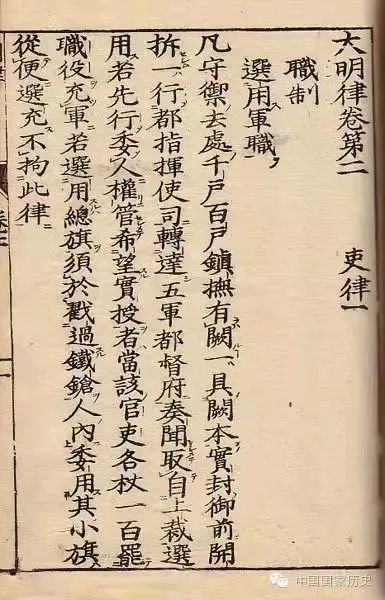 大明律卷第二　吏律一
職制
選用軍職
凡守禦去處千戶百戶鎮撫有闕一具闕本實封御前開
拆一行都指揮使司轉達五軍都督府奏聞取自上裁選
用若先行委人權管希望實授者當該官吏各杖一百罷
職役充軍若選用總旗須於戳過鐵鎗人內委用其小旗
從便選充不拘此律
中国国家历史